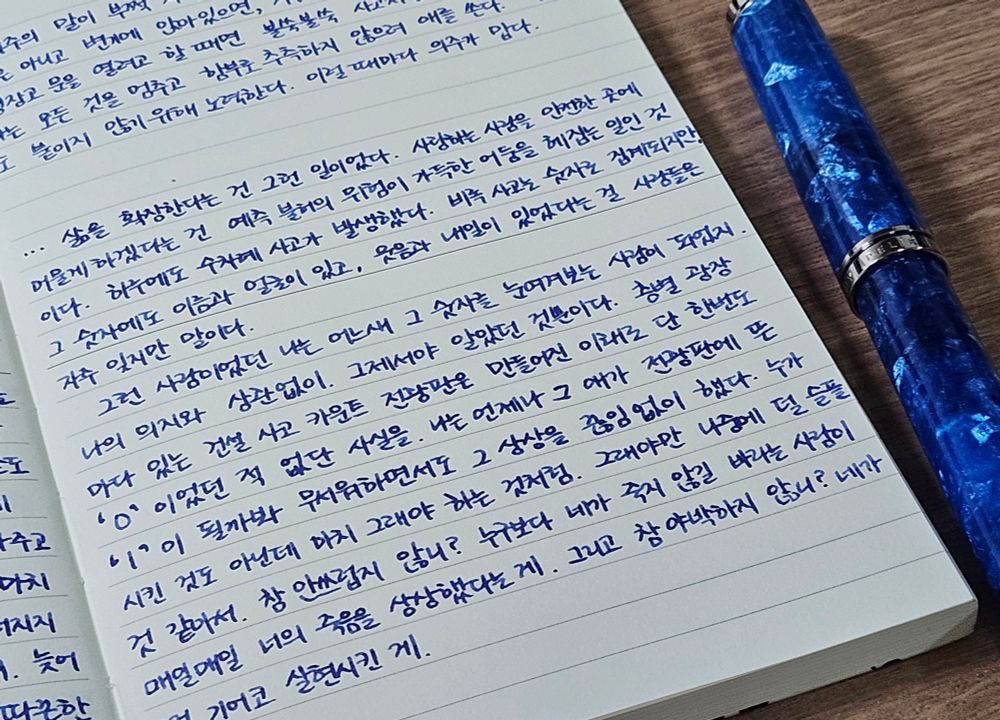 말이 부쩍
아니고 변기에 앉아있으면,
문을 열려고 할 때면 불쑥불쑥
모든 것을 멈추고 함부로 추측하지 않으려 애를 쓴다.
붙이지 않기 위해 노력한다. 이럴 때마다 의주가 밉다.
... 삶을 확장한다는 건 그런 일이었다. 사랑하는 사람을 안전한 곳에
머물게 하겠다는 건 예측 불허의 위험이 가득한 어둠을 헤집는 일인 것
이다. 하루에도 수차례 사고가 발생했다. 비록 사고는 숫자로 집계되지만,
그 숫자에도 이름과 얼굴이 있고, 웃음과 내일이 있었다는 걸 사람들은
자주 잊지만 말이다.
그런 사람이었던 나는 어느새 그 숫자를 눈여겨보는 사람이 되었지.
나의 의지와 상관없이. 그제서야 알았던 것뿐이다. 층별 광장
마다 있는 건설 사고 카운트 전광판은 만들어진 이래로 단 한번도
'0' 이었던 적 없단 사실을. 나는 언제나 그 애가 전광판에 뜬
'1' 이 될까봐 무서워하면서도 그 상상을 끊임없이 했다. 누가
시킨 것도 아닌데 마치 그래야 하는 것처럼. 그래야만 나중에 덜 슬플
것 같아서. 참 안쓰럽지 않니? 누구보다 네가 죽지 않길 바라는 사람이
매일매일 너의 죽음을 상상했다는 게. 그리고 참 야박하지 않니? 네가
기어코 실현시킨 게.
주고
마치
지지
늦어
따끈한